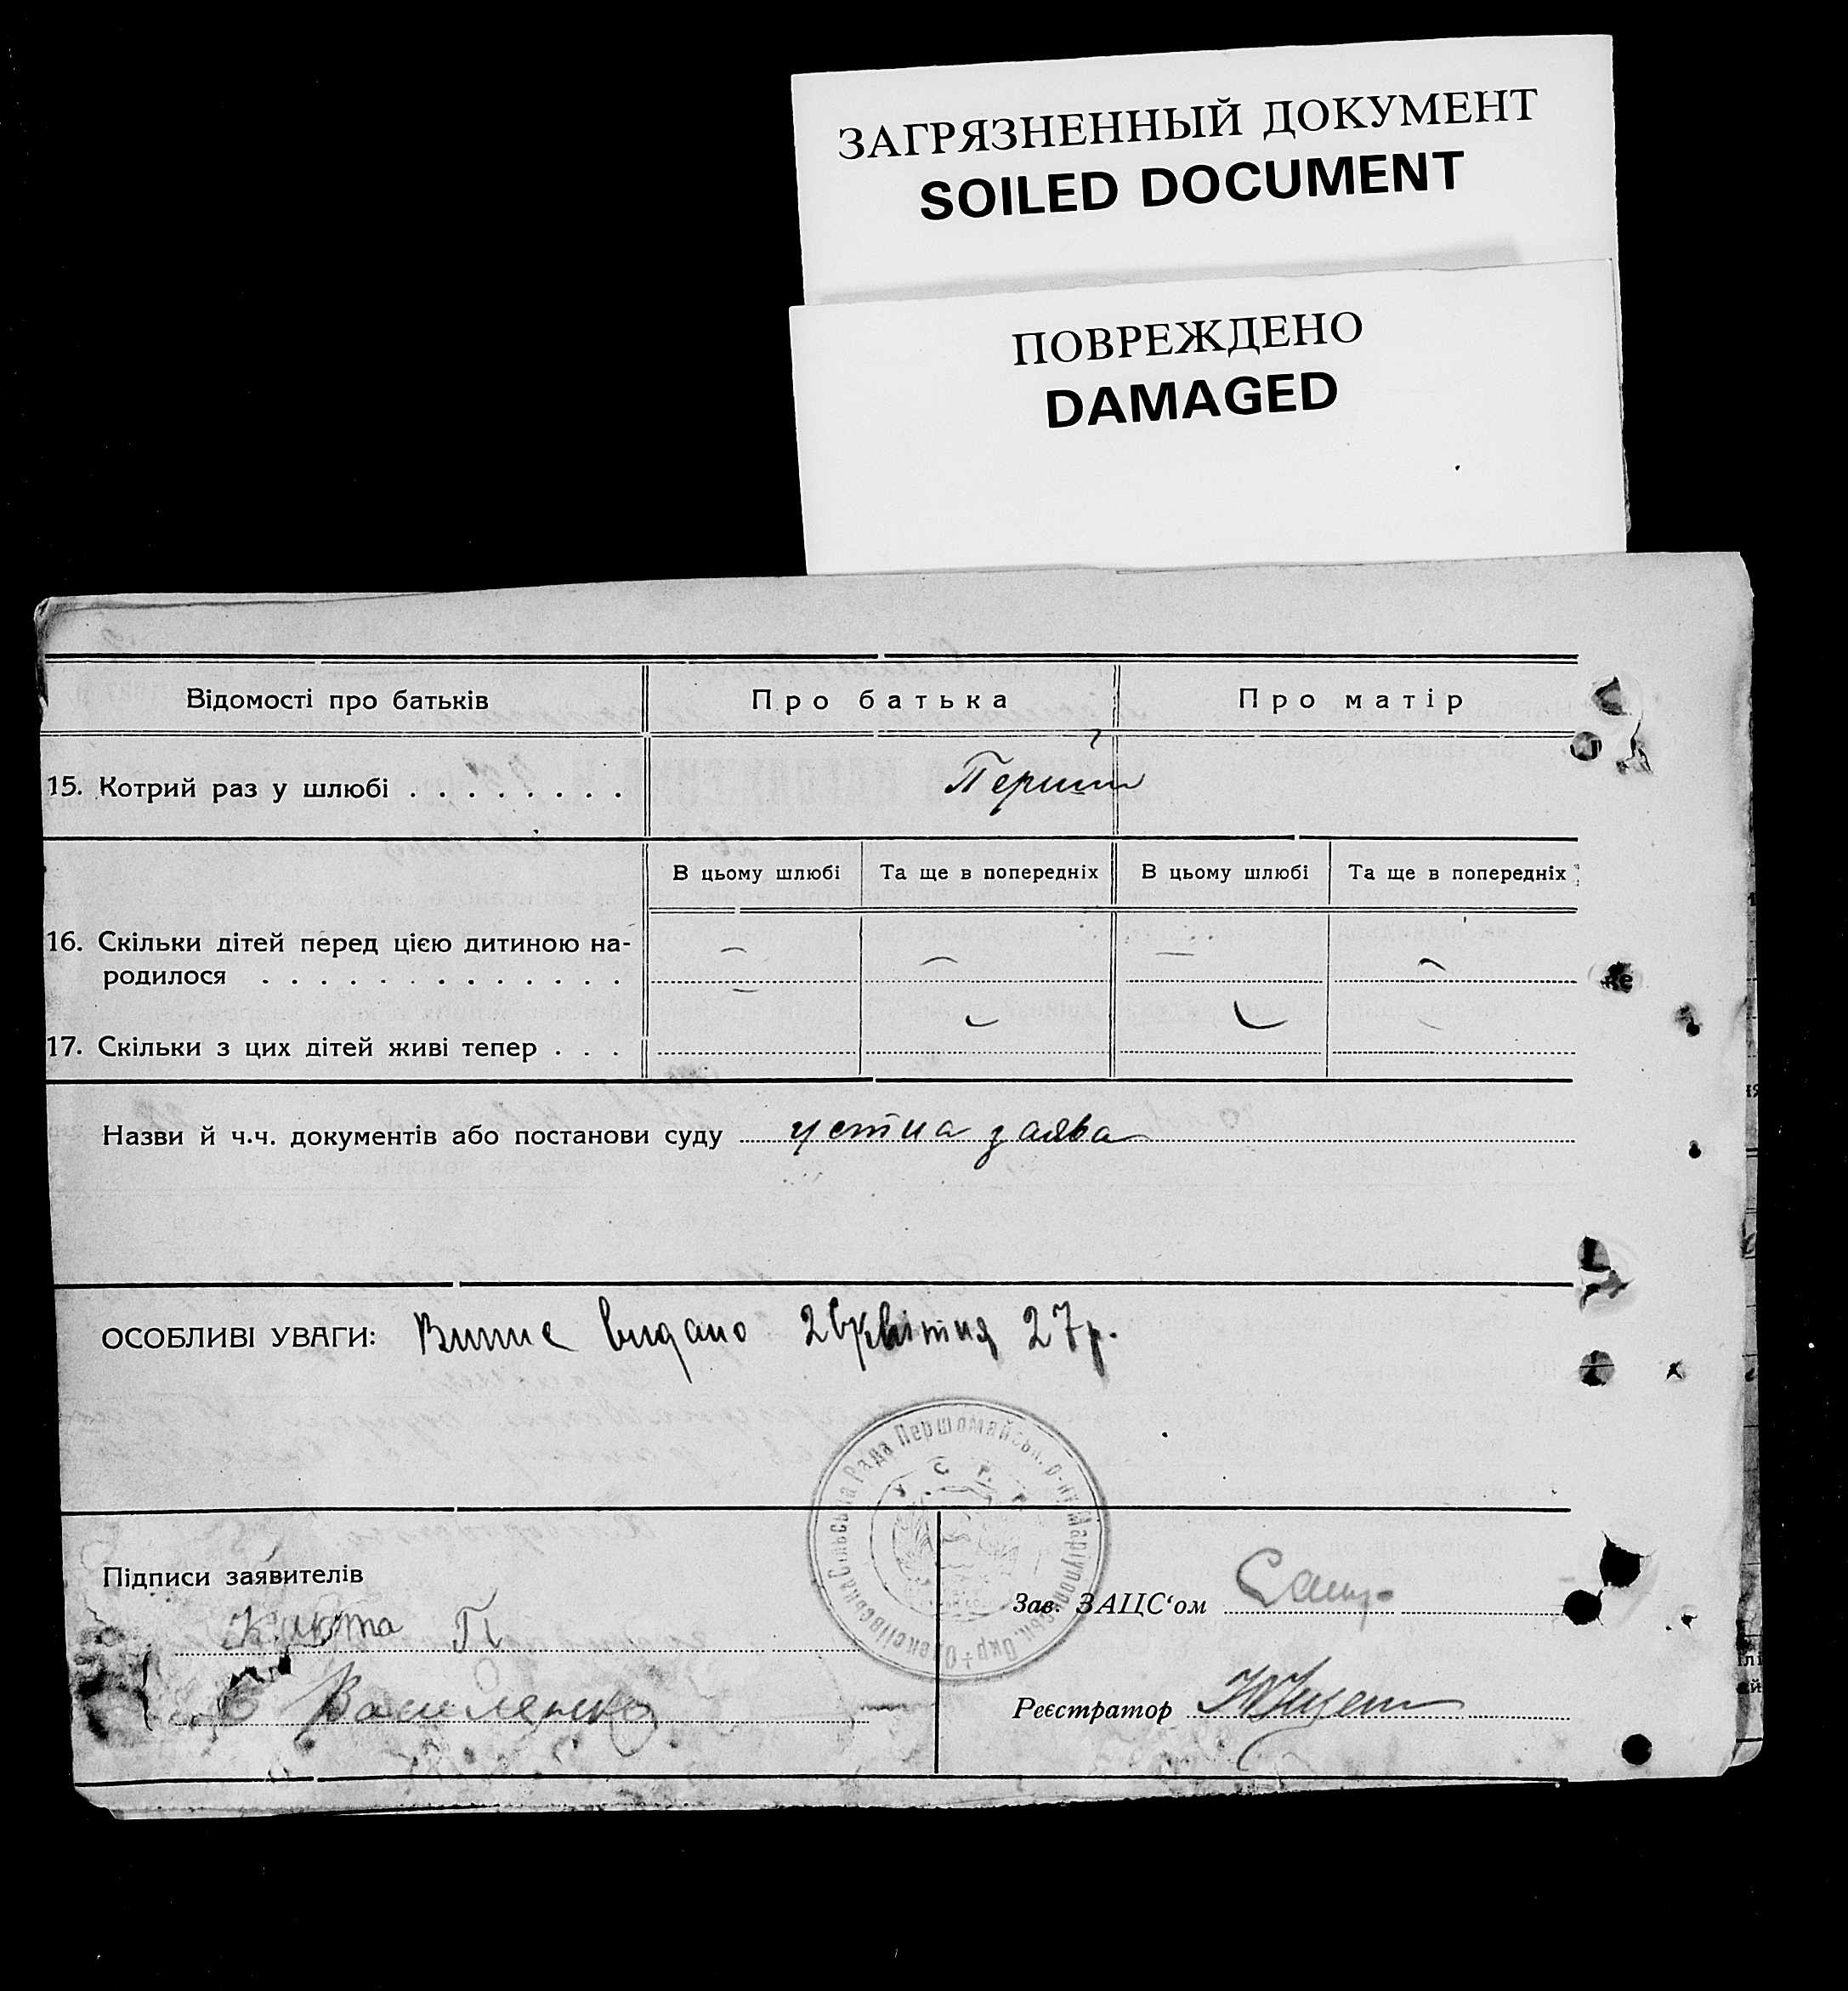 ЗАГРЯЗНЕННЫЙ ДОКУМЕНТ
SOILED DOCUMENT
ПОВРЕЖДЕНО
DAMAGED
Відомості про батьків Про батька Про матір
15. Котрий раз у шлюбі . . . . . . . .
В цьому шлюбі Та ще в попередніх В цьому шлюбі Та ще в попередніх
16. Скільки дітей перед цією дитиною на-
родилося . . . . . . . . . . . . .
17. Скільки з цих дітей живі тепер . . .
Назви й ч.ч. документів або постанови суду устна заява
ОСОБЛИВІ УВАГИ: видано 26 квітня 27р.
Олексіївська Сільська Рада Першомайськ. р-ну Маріупольськ. Окр.
Підписи заявителів
П
Василенко
Зав. ЗАЦС'ом
Реєстратор